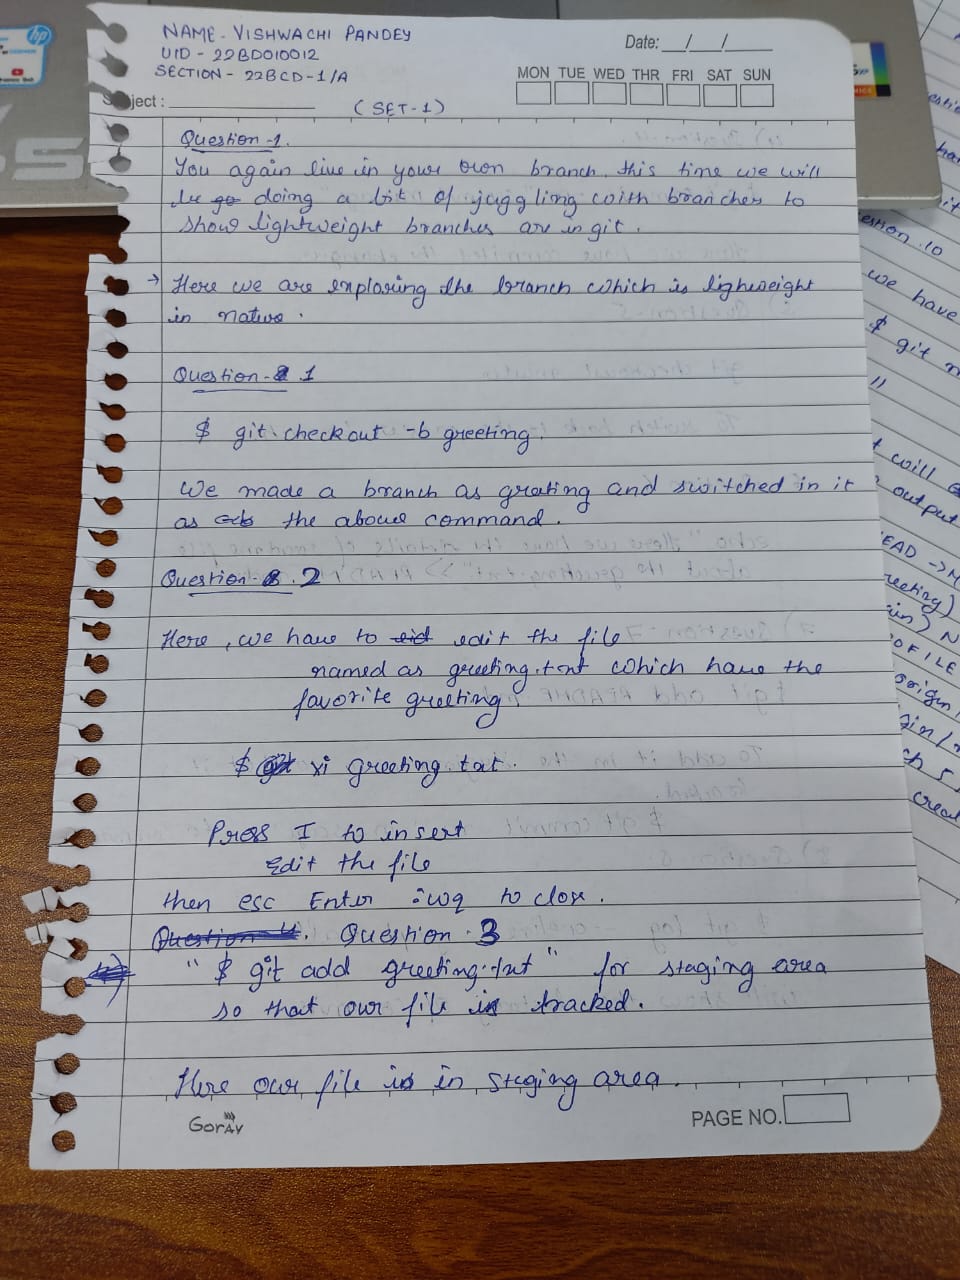 NAME - VISHWACHI PANDEY
UID - 22BD010012
SECTION - 22BCD-1/A
Date: __/__/____
MON TUE WED THR FRI SAT SUN
ject :
(SET-1)
Question-1.
You again live in your own branch. this time we will
be go doing a bit of juggling with branches to
show lightweight branches are in git.
→ Here we are exploring the branch which is lighweight
in native.
Question- 1
$ git checkout -b greeting.
We made a branch as grating and switched in it
as the above command.
Question- 2
Here, we have to edit the file
named as greeting.txt which have the
favorite greeting.
$ vi greeting.txt.
Press I to insert
Edit the file
then esc Enter :wq to close.
Question 4. Question 3
" $ git add greeting.txt " for staging area
so that our file is tracked.
Here our file is in staging area.
Goray
PAGE NO.
hp
estion.10
we have
$ git
"
will
output
EAD ->
reeting)
OFILE
origin